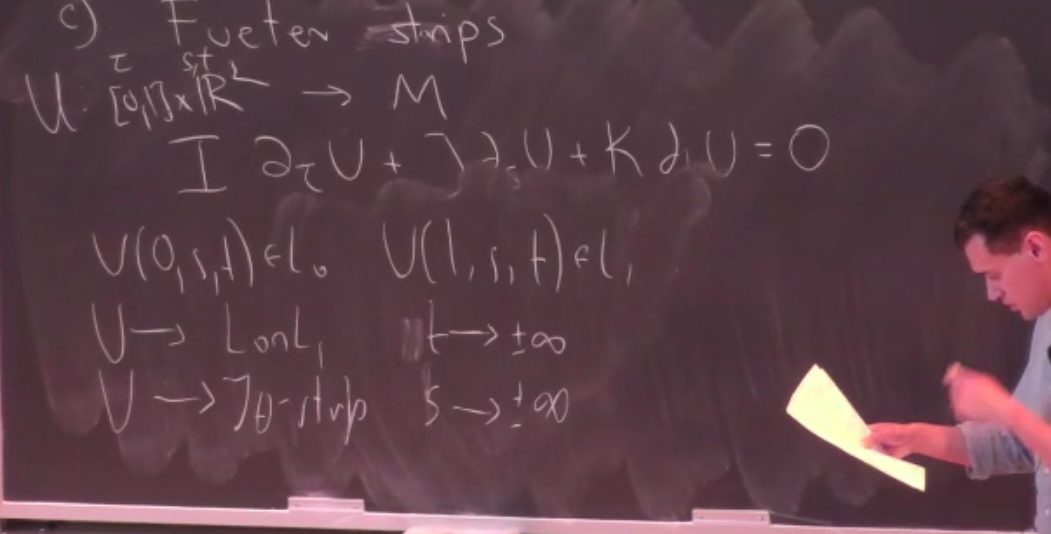 c) Fueter strips
τ s,t
U: [0,1]×ℝ² → M
I ∂τU + J∂sU + K∂tU = 0
U(0,s,t)∈L₀ U(1,s,t)∈L₁
U → L₀∩L₁ t → ±∞
U → Jθ-strip s → ±∞